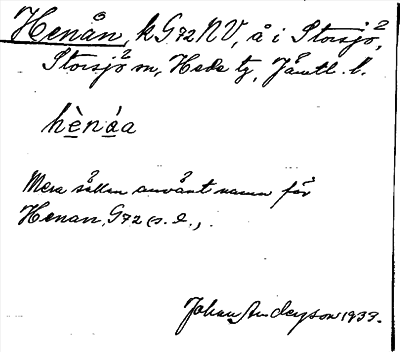 Henån, k G72NV, å i Storsjö,²
Storsjö² sn, Hede tg, Jämtl. l.
hènáa
Mera sällan använt namn för
Henan, G72 s. d.,
Johan Anderson 1939.